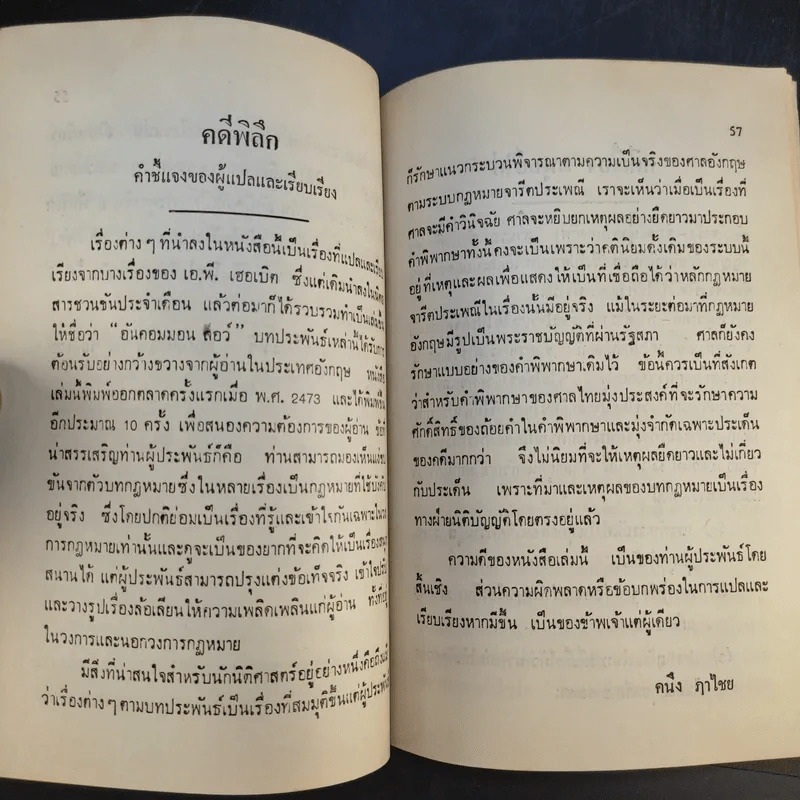 คดีพิลึก
คำชี้แจงของผู้แปลและเรียบเรียง
เรื่องต่าง ๆ ที่นำลงในหนังสือนี้เป็นเรื่องที่แปลและเรียบ
เรียงจากบางเรื่องของ เอ.พี. เฮอเบิต ซึ่งแต่เดิมนำลงใน
สารชวนขันประจำเดือน แล้วต่อมาก็ได้รวบรวมทำเป็นเล่มขึ้น
ให้ชื่อว่า “อันคอมมอน ลอว์” บทประพันธ์เหล่านี้ได้รับการ
ต้อนรับอย่างกว้างขวางจากผู้อ่านในประเทศอังกฤษ หนังสือ
เล่มนี้พิมพ์ออกตลาดครั้งแรกเมื่อ พ.ศ. 2473 และได้พิมพ์
อีกประมาณ 10 ครั้ง เพื่อสนองความต้องการของผู้อ่าน
น่าสรรเสริญท่านผู้ประพันธ์ก็คือ ท่านสามารถมองเห็นแง่
ขันจากตัวบทกฎหมายซึ่งในหลายเรื่องเป็นกฎหมายที่ใช้บังคับ
อยู่จริง ซึ่งโดยปกติย่อมเป็นเรื่องที่รู้และเข้าใจกันเฉพาะใน
การกฎหมายเท่านั้นและดูจะเป็นของยากที่จะคิดให้เป็นเรื่องสนุก
สนานได้ แต่ผู้ประพันธ์สามารถปรุงแต่งข้อเท็จจริง เข้าใจ
และวางรูปเรื่องล้อเลียนให้ความเพลิดเพลินแก่ผู้อ่าน ทั้งที่อยู่
ในวงการและนอกวงการกฎหมาย
มีสิ่งที่น่าสนใจสำหรับนักนิติศาสตร์อยู่อย่างหนึ่งคือถึงแม้
ว่าเรื่องต่าง ๆ ตามบทประพันธ์เป็นเรื่องที่สมมุติขึ้นแต่ผู้ประพันธ์
57
ก็รักษาแนวกระบวนพิจารณาตามความเป็นจริงของศาลอังกฤษ
ตามระบบกฎหมายจารีตประเพณี เราจะเห็นว่าเมื่อเป็นเรื่องที่
ศาลจะมีคำวินิจฉัย ศาลจะหยิบยกเหตุผลอย่างยืดยาวมาประกอบ
คำพิพากษาทั้งนี้คงจะเป็นเพราะว่าคตินิยมดั้งเดิมของระบบนี้
อยู่ที่เหตุและผลเพื่อแสดงให้เป็นที่เชื่อถือได้ว่าหลักกฎหมาย
จารีตประเพณีในเรื่องนั้นมีอยู่จริง แม้ในระยะต่อมาที่กฎหมาย
อังกฤษมีรูปเป็นพระราชบัญญัติที่ผ่านรัฐสภา ศาลก็ยังคง
รักษาแบบอย่างของคำพิพากษาเดิมไว้ ข้อนี้ควรเป็นที่สังเกต
ว่าสำหรับคำพิพากษาของศาลไทยมุ่งประสงค์ที่จะรักษาความ
ศักดิ์สิทธิ์ของถ้อยคำในคำพิพากษาและมุ่งจำกัดเฉพาะประเด็น
ของคดีมากกว่า จึงไม่นิยมที่จะให้เหตุผลยืดยาวและไม่เกี่ยว
กับประเด็น เพราะที่มาและเหตุผลของบทกฎหมายเป็นเรื่อง
ทางฝ่ายนิติบัญญัติโดยตรงอยู่แล้ว
ความดีของหนังสือเล่มนี้ เป็นของท่านผู้ประพันธ์โดย
สิ้นเชิง ส่วนความผิดพลาดหรือข้อบกพร่องในการแปลและ
เรียบเรียงหากมีขึ้น เป็นของข้าพเจ้าแต่ผู้เดียว
คนึง ฦาไชย